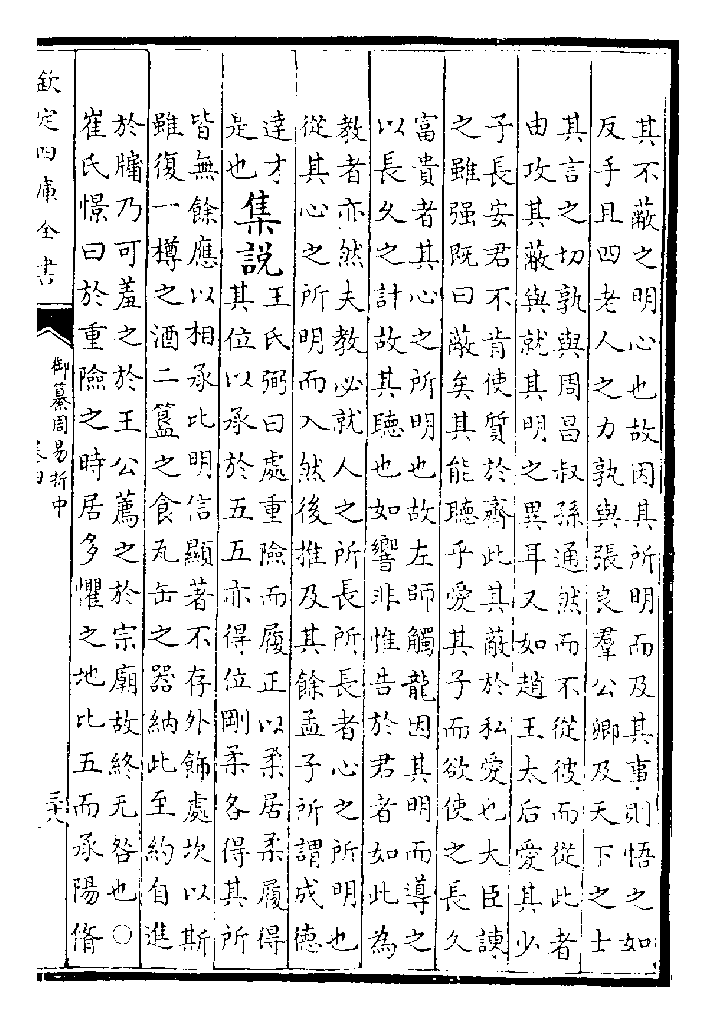 其不蔽之明心也故因其所明而及其事則悟之如
反手且四老人之力孰與張良羣公卿及天下之士
其言之切孰與周昌叔孫通然而不從彼而從此者
由攻其蔽與就其明之異耳又如趙王太后愛其少
子長安君不肯使質於齊此其蔽於私愛也大臣諫
之雖强既曰蔽矣其能聽乎愛其子而欲使之長久
富貴者其心之所明也故左師觸龍因其明而導之
以長久之計故其聽也如響非惟告於君者如此為
教者亦然夫教必就人之所長所長者心之所明也
從其心之所明而入然後推及其餘孟子所謂成德
達才
是也
集説
王氏弼曰處重險而履正以柔居柔履得
其位以承於五五亦得位剛柔各得其所
皆無餘應以相承比明信顯著不存外飾處坎以斯
雖復一樽之酒二簋之食瓦缶之器納此至約自進
於牖乃可羞之於王公薦之於宗廟故終无咎也○
崔氏憬曰於重險之時居多懼之地比五而承陽脩
欽定四庫全書
御纂周易折中
卷四
三十八